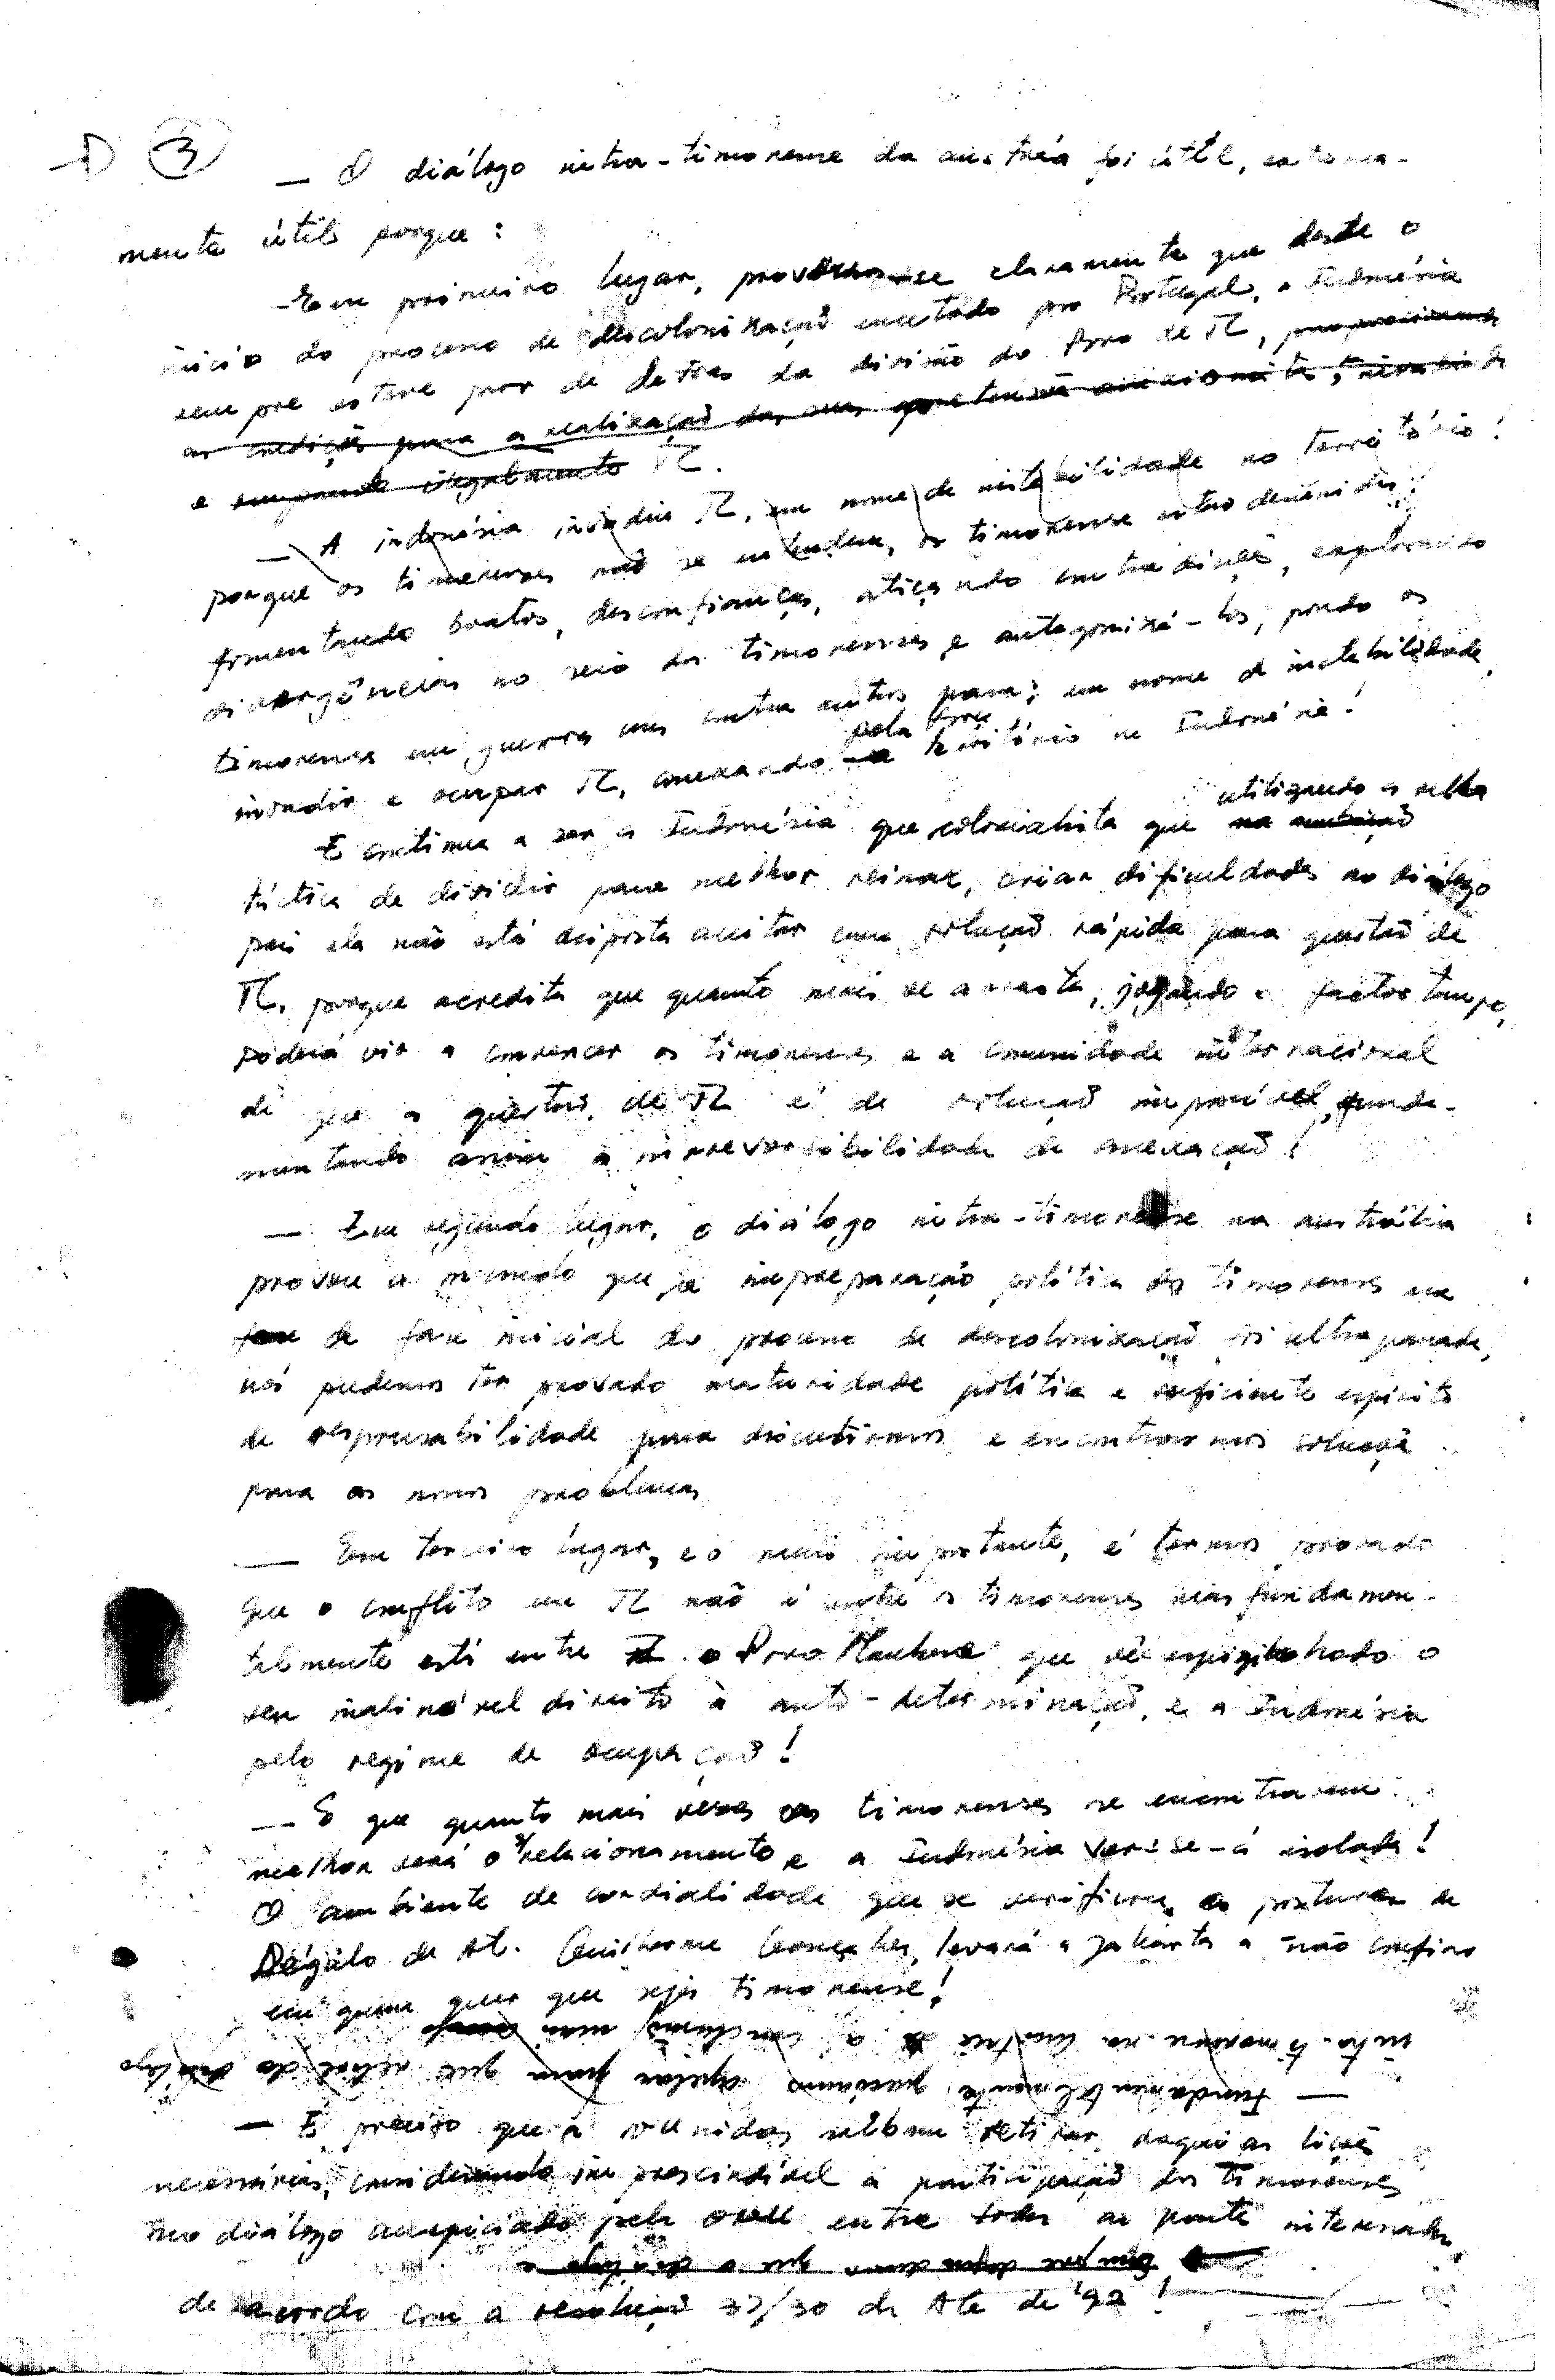 3
— O diálogo intra-timorense da austría foi útil, extrema-
mente útil porque:
- Em primeiro lugar, provou-se claramente que desde o
início do processo de descolonização encetado por Portugal, a Indonésia
sempre esteve por de detrás da divisão do Povo de TL,
as condições para a realização das suas pretensões anexionistas,
e ocupando ilegalmente TL.
— A indonésia invadiu TL, em nome de instabilidade no território!
porque os timorenses não se entendem, os timorenses estão desunidos!
fomentando boatos, desconfianças, atiçando contradições, explorando
divergências no seio dos timorenses e antagonizá-los, pondo os
timorenses em guerra uns contra outros para; em nome de instabilidade,
pela força
invadir e ocupar TL, anexando o território na Indonésia!
utilizando a velha
E continua a ser a Indonésia que colonialista que na ambição
táctica de dividir para melhor reinar, criar dificuldades ao diálogo
pois ela não está disposta aceitar uma solução rápida para questão de
TL, porque acredita que quanto mais se arrasta, jogando o factor tempo,
poderá vir a convencer os timorenses e a comunidade internacional
de que a questão de TL é de solução impossível, funda-
mentando assim a irreversibilidade de anexação!
— Em segundo lugar, o diálogo intra-timorense na austrália
provou a mundo que a impreparação política dos timorenses na
fase de fase inicial do processo de descolonização foi ultrapassada,
nós pudemos ter provado maturidade política e suficiente espírito
de responsabilidade para discutirmos e encontrarmos soluções
para os nossos problemas
— Em terceiro lugar, e o mais importante, é termos provado
que o conflito em TL não é entre os timorenses mas fundamen-
talmente está entre TL o Povo Maubere que vê espezinhado o
seu inalienável direito à auto-determinação, e a Indonésia
pelo regime de ocupação!
— E que quanto mais vezes os timorenses se encontrarem
melhor será o relacionamento e a Indonésia ver-se-á isolada!
O ambiente de cordialidade que se verificou, a postura de
Régulo de At. Guilherme Gonçalves, levará a Jakarta a não confiar
em quem quer que seja timorense!
— Fundamentalmente, queríamos apelar para que retirar do diálogo
intra-timorense na austria a conclusão mais
— É preciso que a N. Unidas saibam retirar daqui as lições
necessárias, considerando imprescindível a participação dos timorenses
no diálogo auspiciado pela ONU entre todas as partes interessadas,
que o diálogo e
de acordo com a resolução 37/30 da AG de '92!